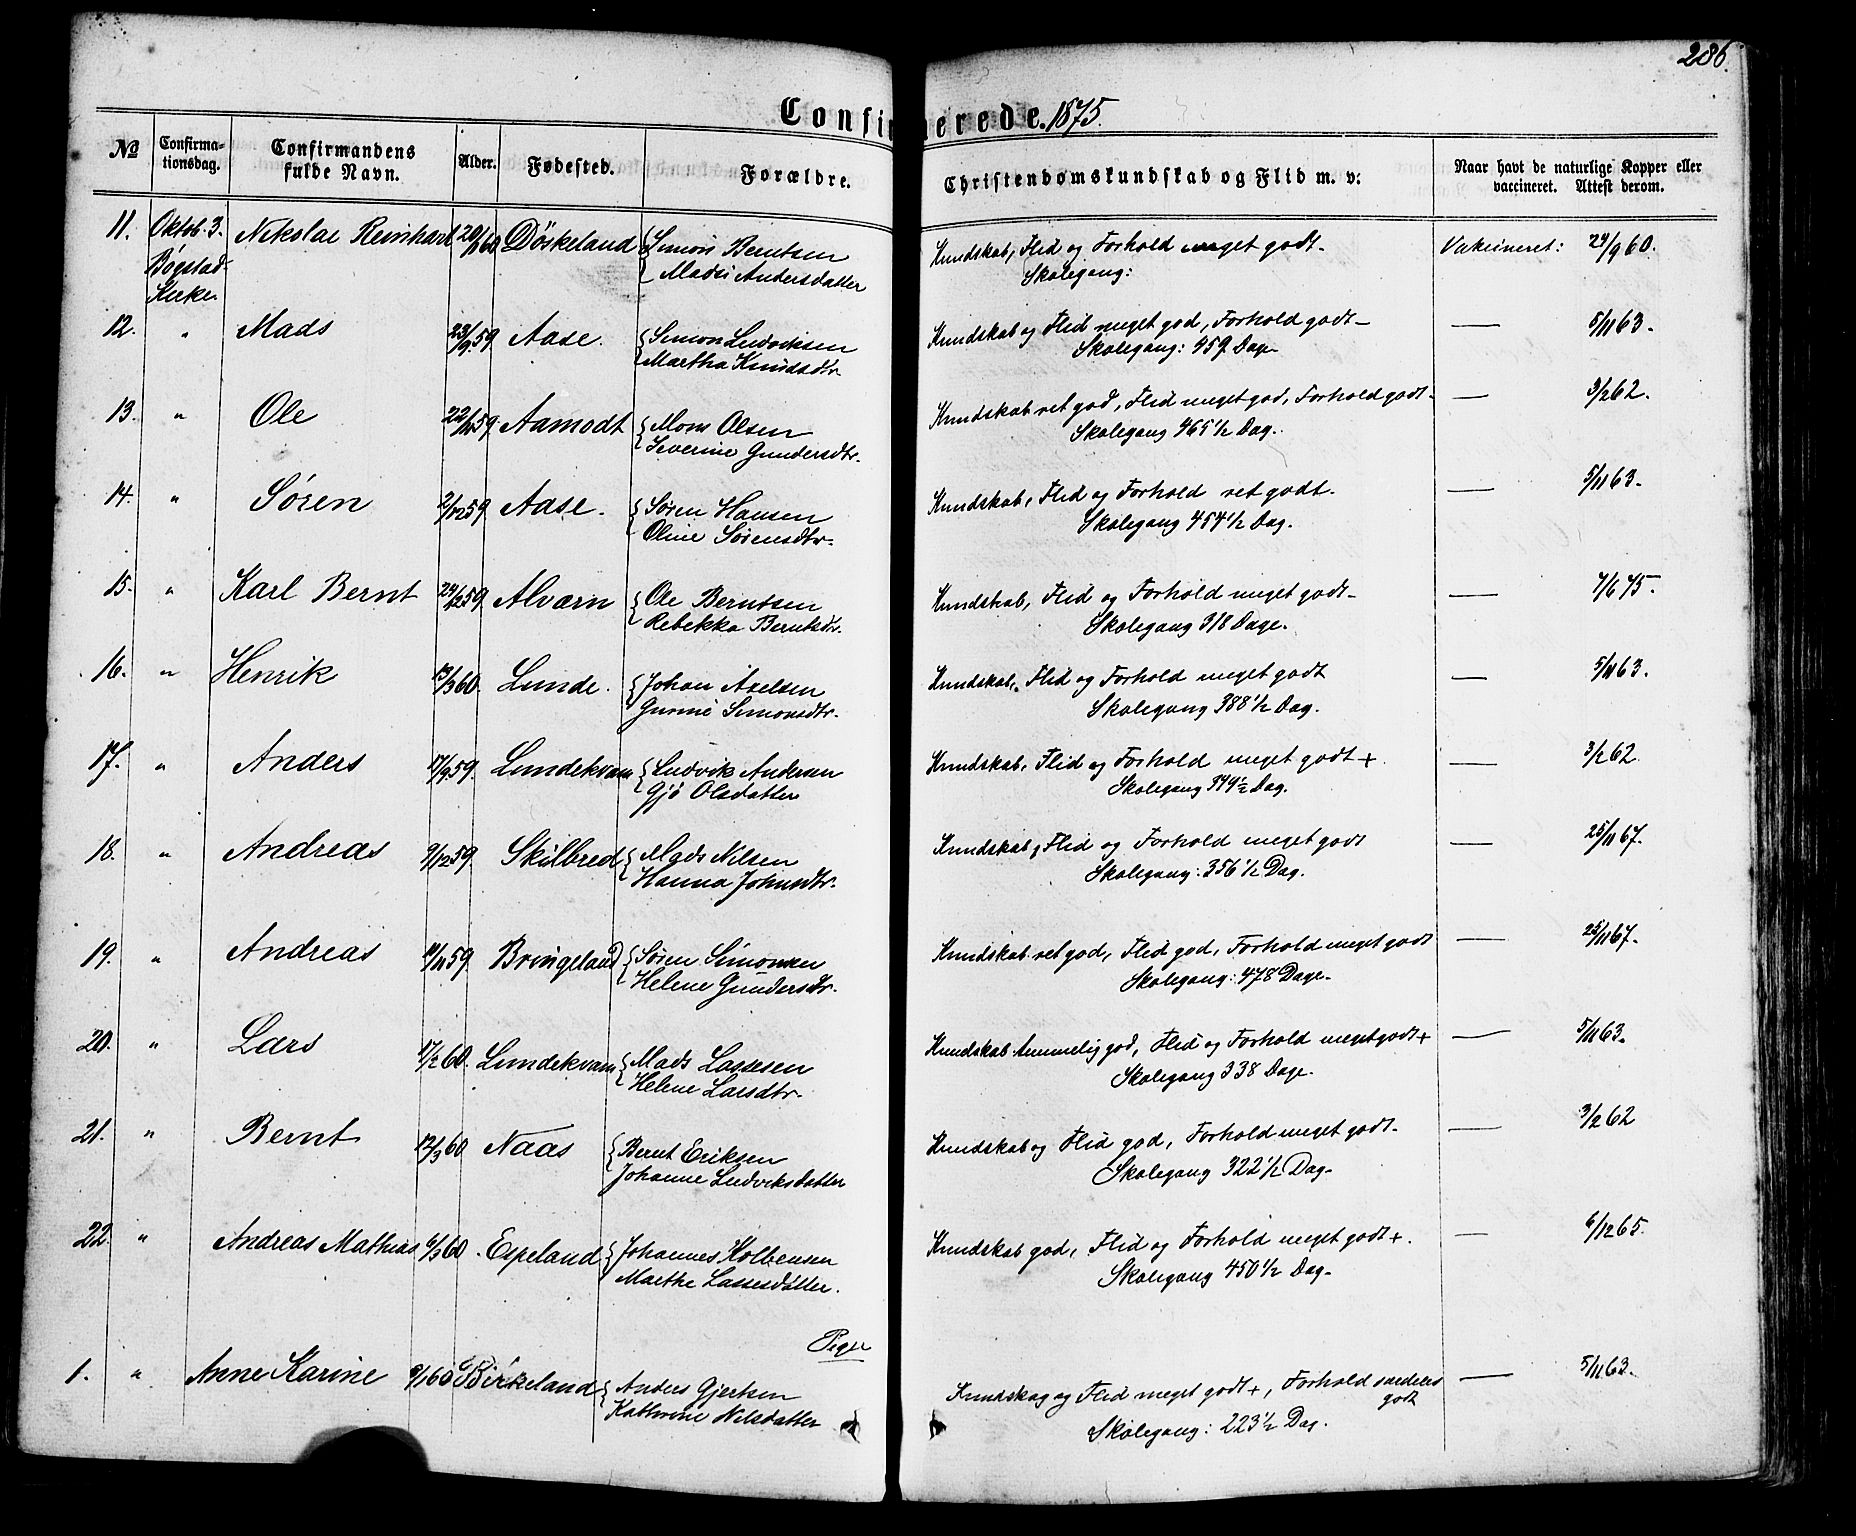 286.
Confirmerede. 1875.
No Confirmationsdag. Confirmandens fulde Navn. Alder. Fødested. Forældre. Christendomskundskab og Flid m. v: Naar havt de naturlige Kopper eller vaccineret. Attest derom.
11. Oktob. 3. Nikolai Reinhart 60 Döskeland Simon Berntsen Kundskab, Flid og Forhold meget godt. Vakcineret: 24/9 60.
Bögstad Madsi Andersdatter Skolegang:
Kirke
12. " Mads 23/9 59 Aase. Simon Ludviksen Kundskab og Flid meget god, Forhold godt — 5/11 63.
Martha Knudsdtr. Skolegang: 459 Dage
13. " Ole 59 Aamodt Mons Olsen Kundskab ret god, Flid meget god, Forhold godt. — 3/2 62.
Severine Gundersdtr. Skolegang 465 1/2 Dag.
14. " Sören 2/12 59 Aase. Sören Hansen Kundskab, Flid og Forhold ret godt. — 5/11 63.
Oline Sörensdtr. Skolegang 454 1/2 Dag.
15. " Karl Bernt 24/12 59 Alværn Ole Berntsen Kundskab, Flid og Forhold meget godt — 7/6 75.
Rebekka Berntsdtr. Skolegang 318 Dage.
16. " Henrik 13/3 60. Lunde. Johan Axelsen Kundskab, Flid og Forhold meget godt — 5/11 63.
Gurine Simonsdtr. Skolegang 388 1/2 Dag.
17. " Anders 17/9 59. Lundekvam Ludvik Andersen Kundskab, Flid og Forhold meget godt +. — 3/2 62.
Gjö Olsdatter Skolegang 1/2 Dag.
18. " Andreas 9/12 59. Skilbred Mads Nilsen Kundskab, Flid og Forhold meget godt — 25/11 67.
Hanna Johnsdtr. Skolegang: 356 1/2 Dag.
19. " Andreas 11/11 59 Bringeland Sören Simonsen Kundskab ret god, Flid god, Forhold meget godt — 25/11 67.
Helene Gundersdtr. Skolegang: 478 Dage.
20. " Lars 17/2 60. Lundekvam Mads Lassesen Kundskab temmelig god, Flid og Forhold meget godt + — 5/11 63.
Helene Larsdtr. Skolegang 338 Dage.
21. " Bernt 12/3 60 Naas Bernt Eriksen Kundskab og Flid god, Forhold meget godt. — 3/2 62
Johanne Ludviksdatter Skolegang 322 1/2 Dag.
22. " Andreas Mathias 6/3 60. Espeland Johannes Kolbensen Kundskab god, Flid og Forhold meget godt +. — 6/12 65.
Marthe Lassesdatter. Skolegang 450 1/2 Dag.
Piger
1. " Anne Karine 9/1 60 Birkeland Anders Gjertsen Kundskag og Flid meget godt +, Forhold særdeles godt — 5/11 63.
Kathrine Nilsdatter Skolegang: 223 1/2 Dag.